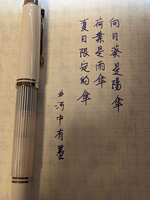 向日葵是陽傘
荷葉是雨傘
夏日限定的傘
#河中有墨